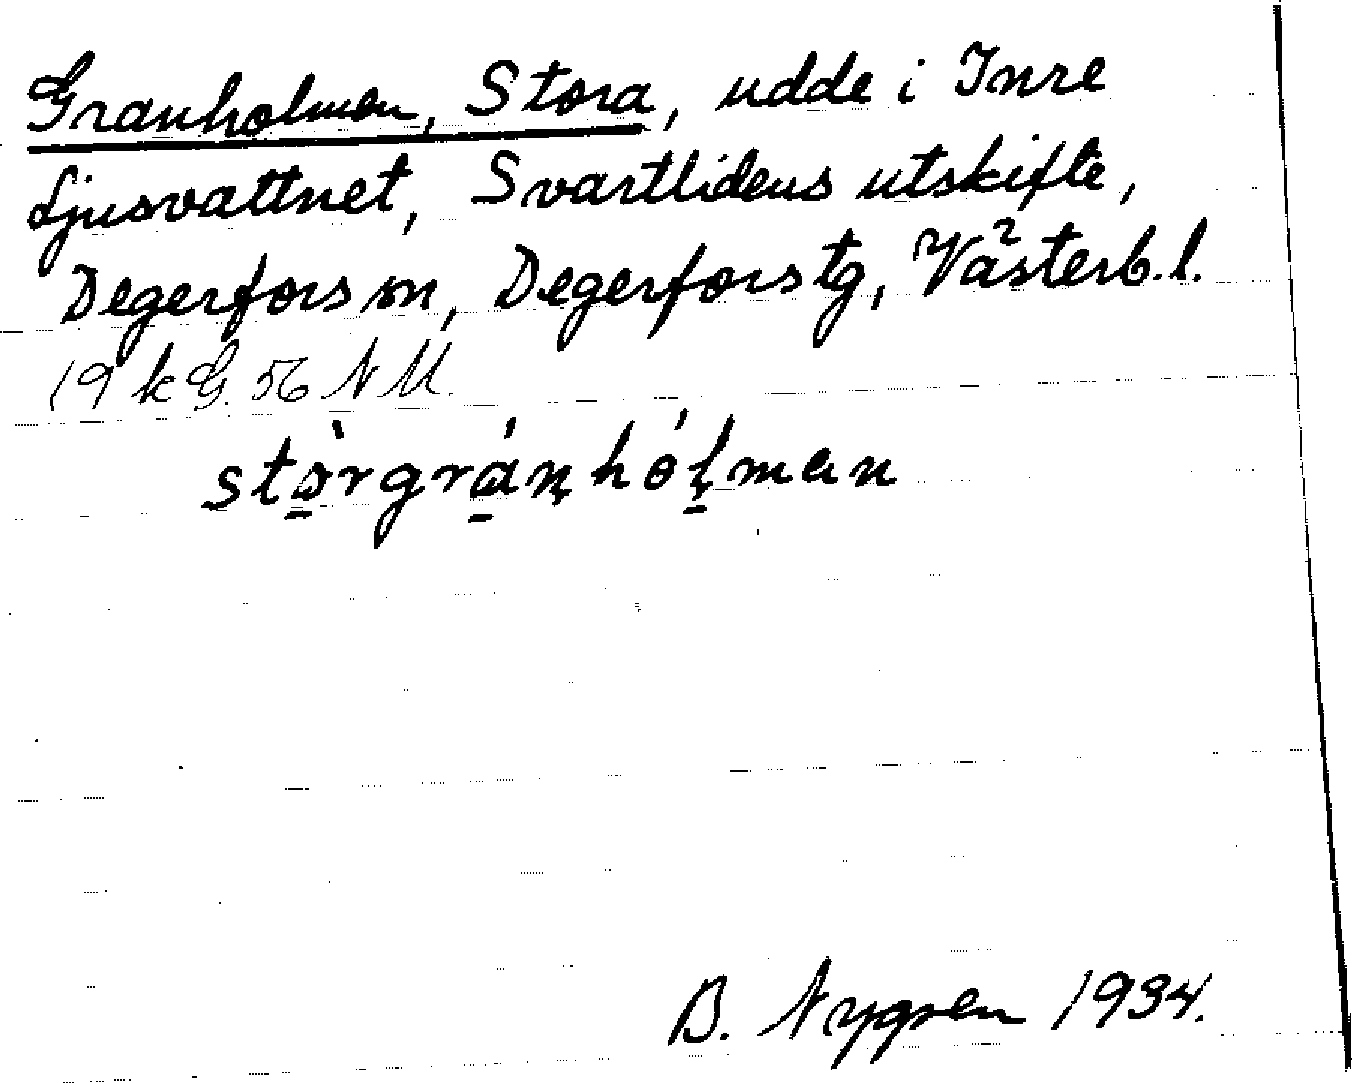 Granholmen, Stora, udde i Inre
Ljusvattnet, Svartlidens utskifte,
Degerfors sn, Degerfors tg, Västerb. l.
19 k G. 56 N M.
stòrgránhólman
B. Nygren 1934.